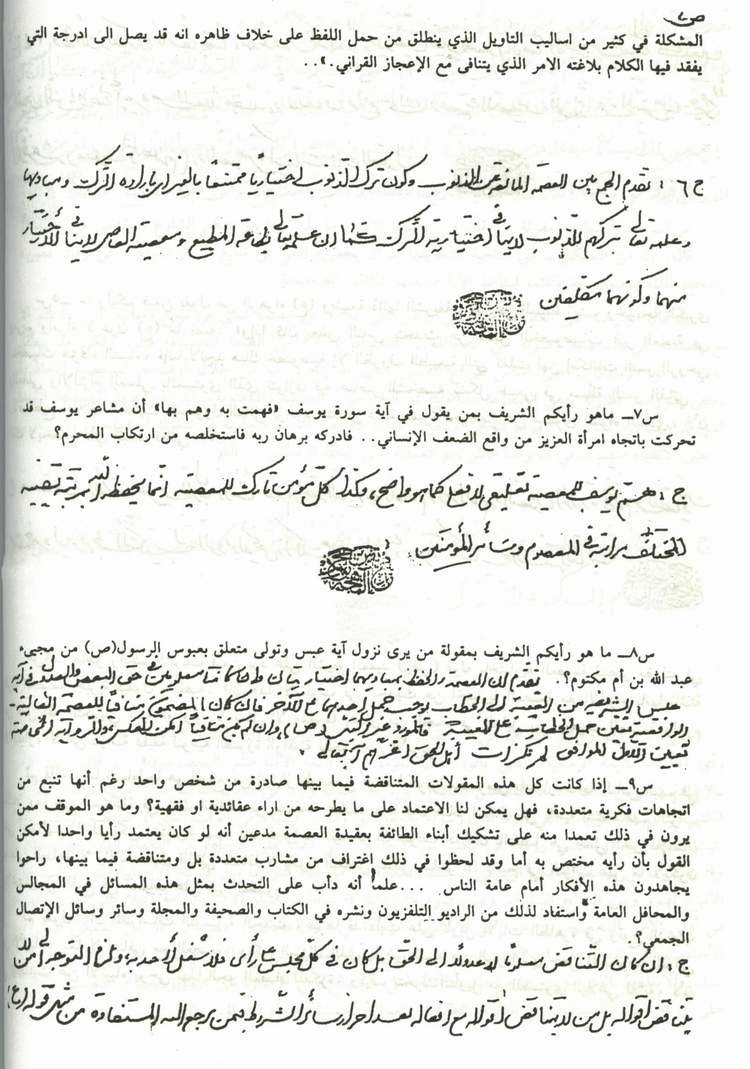 ص٧
المشكلة في كثير من اساليب التاويل الذي ينطلق من حمل اللفظ على خلاف ظاهره انه قد يصل الى ادرجة التي
يفقد فيها الكلام بلاغته الامر الذي يتنافى مع الإعجاز القراني.»..
ج٦: تقدم الجمع بين العصمة المانعة عن الذنوب وكون ترك الذنوب اختياريًا بإرادة الترك ومباديها
وعلمه تعالى بتركهم للذنوب لا ينافي اختيارية الترك كما ان علمه تعالى بطاعة المطيع ومعصية العاصي لا ينافي الاختيار
منهما وكونهما مكلفين
س٧ـ ماهو رأيكم الشريف بمن يقول في آية سورة يوسف «فهمت به وهم بها» أن مشاعر يوسف قد
تحركت باتجاه امرأة العزيز من واقع الضعف الإنساني.. فادركه برهان ربه فاستخلصه من ارتكاب المحرم؟
ج: هم يوسف للمعصية تعليقي لا فعلي كما هو واضح، وهكذا كل مؤمن تارك للمعصية انما يحفظه الله بمرتبة
المختلفة مراتبه في المعصوم وسائر المؤمنين
س٨ـ ما هو رأيكم الشريف بمقولة من يرى نزول آية عبس وتولى متعلق بعبوس الرسول(ص) من مجيىء
عبد الله بن أم مكتوم؟. تقدم ان العصمة والحفظ بمباديها اختياريتان
من الغيبة الى الخطاب يوجب حمل احدهما على الآخر فان كان منافيًا للعصمة
تعين حمل الخطابية على الغيبية غير النبي (ص) وان لم يكن منافيًا امكن العكس والرواية
الموافق لمرتكزات أهل الحق اعزهم الله تعالى.
س٩ـ إذا كانت كل هذه المقولات المتناقضة فيما بينها صادرة من شخص واحد رغم أنها تنبع من
أتجاهات فكرية متعددة، فهل يمكن لنا الاعتماد على ما يطرحه من اراء عقائدية او فقهية؟ وما هو الموقف ممن
يرون في ذلك تعمدا منه على تشكيك أبناء الطائفة بعقيدة العصمة مدعين أنه لو كان يعتمد رأيا واحدا لأمكن
القول بأن رأيه مختص به أما وقد لحظوا في ذلك إغتراف من مشارب متعددة بل ومتناقضة فيما بينها، راحوا
يجاهدون هذه الأفكار أمام عامة الناس ...علما أنه دأب على التحدث بمثل هذه المسائل في المجالس
والمحافل العامة واستفاد لذلك من الراديو التلفزيون ونشره في الكتاب والصحيفة والمجلة وسائر وسائل الإتصال
الجمعي؟.
ج: ان كان التناقض لا عدولًا الى الحق بل كان في كل مجلس على رأي فلا ولزم التوجه الى من لا
يتناقض اقواله بل من لا يتناقض اقواله مع افعاله بعد احراز سائر الشروط فيمن يرجع اليه المستفادة من قوله (ع)